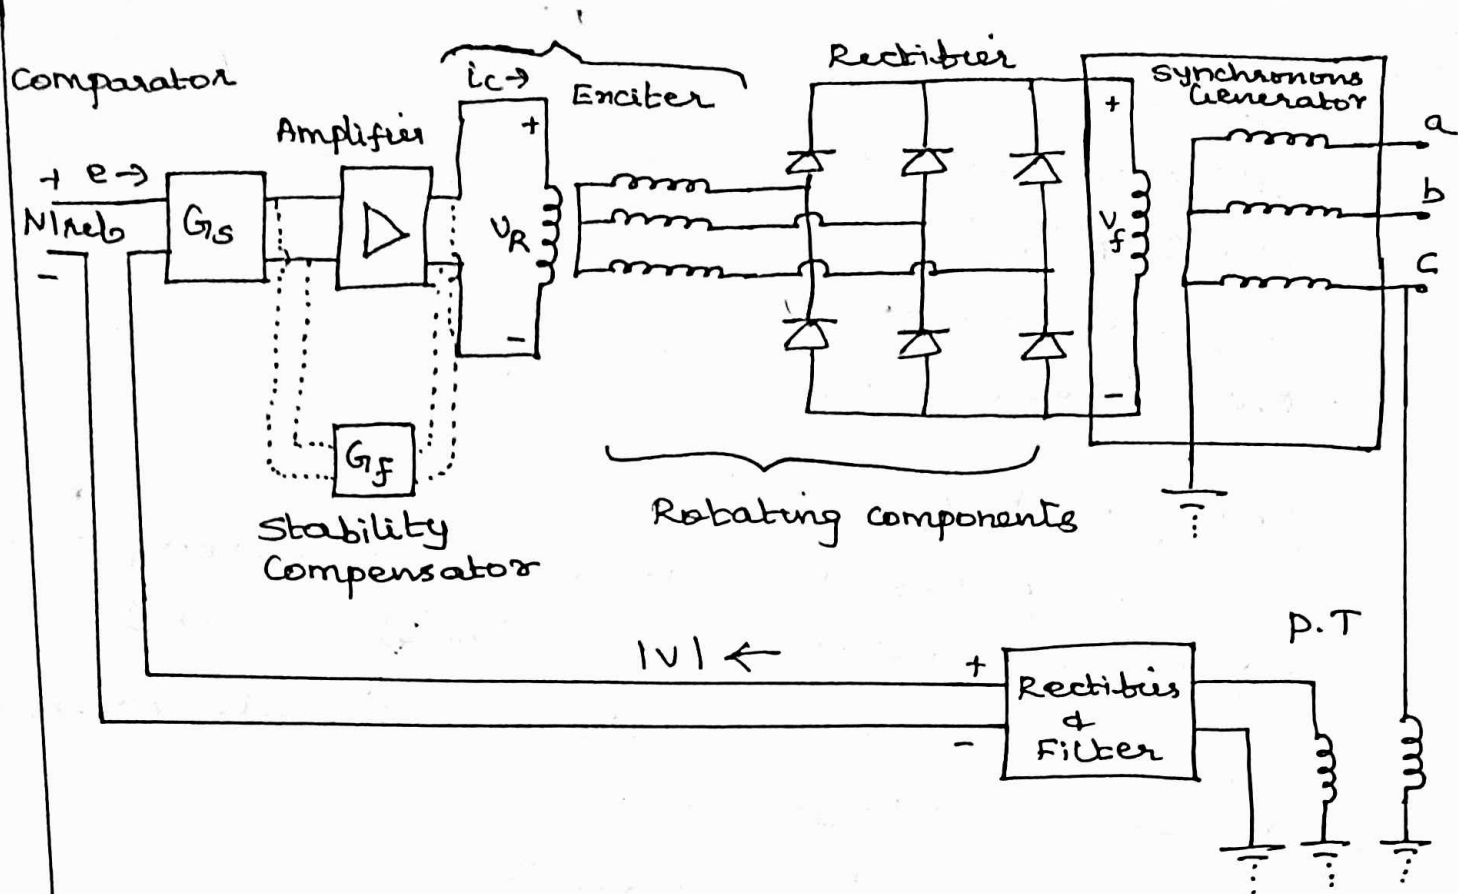 Comparator
Amplifier
ic→
Exciter
Rectifier
Synchronous
Generator
a
b
c
+ e→
|V|ref
-
Gs
+
VR
-
+
Vf
-
Gf
Stability
Compensator
Rotating components
P.T
|V| ←
+
-
Rectifier
&
Filter